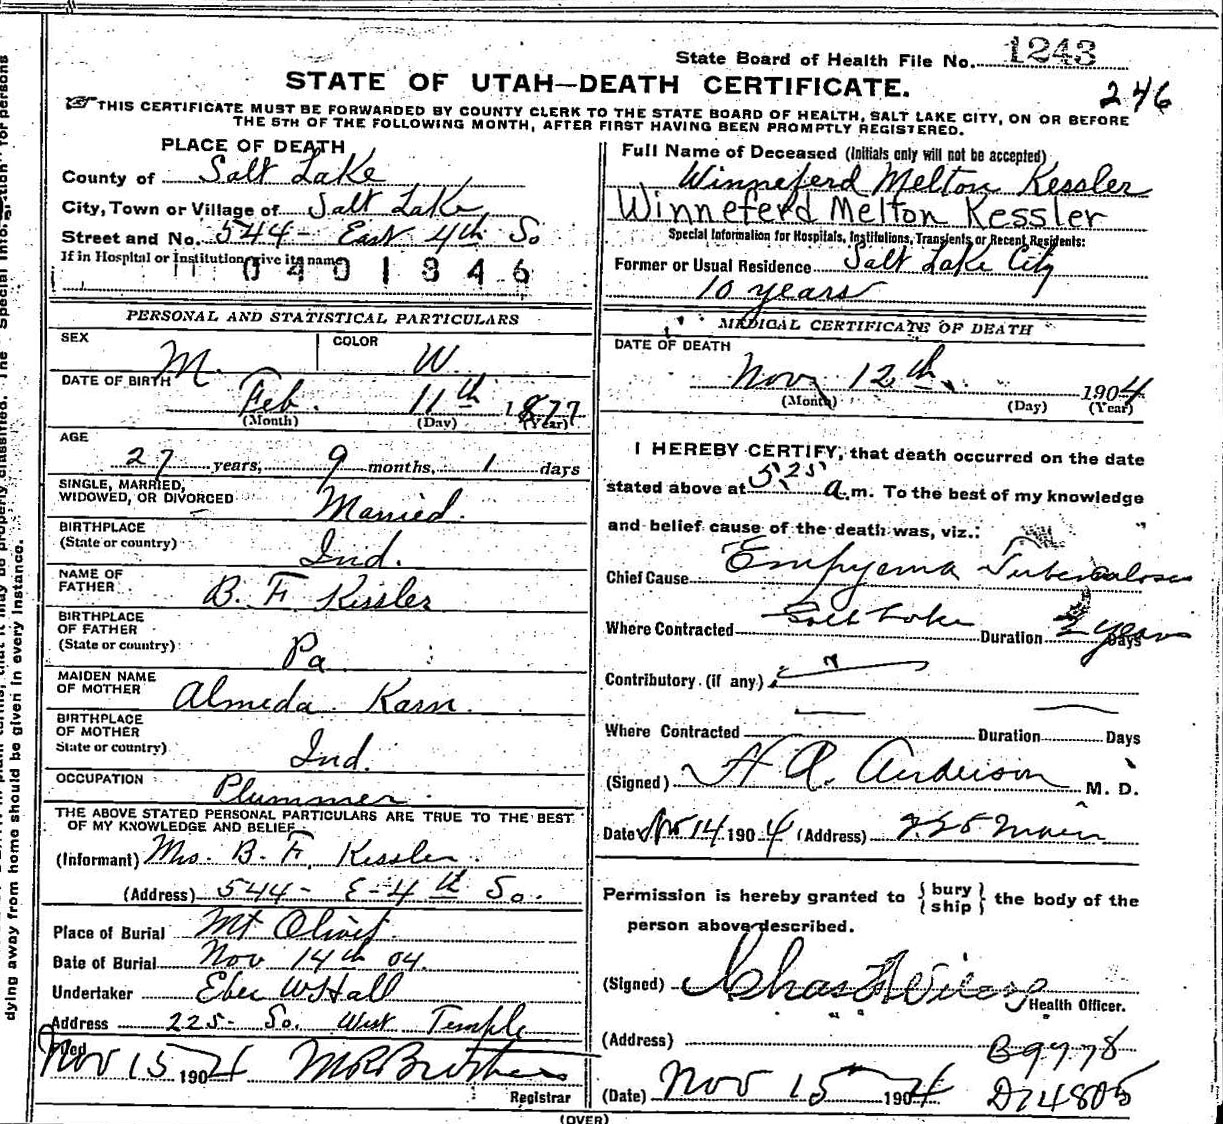 State Board of Health File No. 1243
STATE OF UTAH—DEATH CERTIFICATE.
246
THIS CERTIFICATE MUST BE FORWARDED BY COUNTY CLERK TO THE STATE BOARD OF HEALTH, SALT LAKE CITY, ON OR BEFORE
THE 5TH OF THE FOLLOWING MONTH, AFTER FIRST HAVING BEEN PROMPTLY REGISTERED.
PLACE OF DEATH
County of Salt Lake
City, Town or Village of Salt Lake
Street and No. 544- East 4th So
If in Hospital or Institution give its name
0401346
PERSONAL AND STATISTICAL PARTICULARS
SEX M. COLOR W.
DATE OF BIRTH Feb. 11th 1877
(Month) (Day) (Year)
AGE
27 years, 9 months, 1 days
SINGLE, MARRIED,
WIDOWED, OR DIVORCED Married.
BIRTHPLACE
(State or country) Ind.
NAME OF
FATHER B. F. Kissler
BIRTHPLACE
OF FATHER
(State or country) Pa
MAIDEN NAME
OF MOTHER Almeda Karn
BIRTHPLACE
OF MOTHER
State or country) Ind.
OCCUPATION Plummer.
THE ABOVE STATED PERSONAL PARTICULARS ARE TRUE TO THE BEST
OF MY KNOWLEDGE AND BELIEF
(Informant) Mrs. B. F. Kissler.
(Address) 544- E-4th So.
Place of Burial Mt Olivit.
Date of Burial Nov 14th 04.
Undertaker Eber W Hall
Address 225- So. West Temple
Filed Nov 15 1904
Registrar
Full Name of Deceased (Initials only will not be accepted)
Winneferd Melton Kessler
Winneferd Melton Kessler
Special Information for Hospitals, Institutions, Transients or Recent Residents:
Former or Usual Residence Salt Lake City
10 years
MEDICAL CERTIFICATE OF DEATH
DATE OF DEATH
Nov 12th, 1904
(Month) (Day) (Year)
I HEREBY CERTIFY, that death occurred on the date
stated above at 5 25 a.m. To the best of my knowledge
and belief cause of the death was, viz.:
Chief Cause Empyema Tuberculosis
Where Contracted Salt Lake Duration 2 years Days
Contributory (if any)
Where Contracted Duration Days
(Signed) H A. Anderson M. D.
Date Nov 14 1904 (Address) 225 Main
Permission is hereby granted to { bury ship } the body of the
person above described.
(Signed) Chas Health Officer.
(Address) B9778
(Date) Nov 15 1904 D14805
(OVER)
dying away from home should be given in every instance.